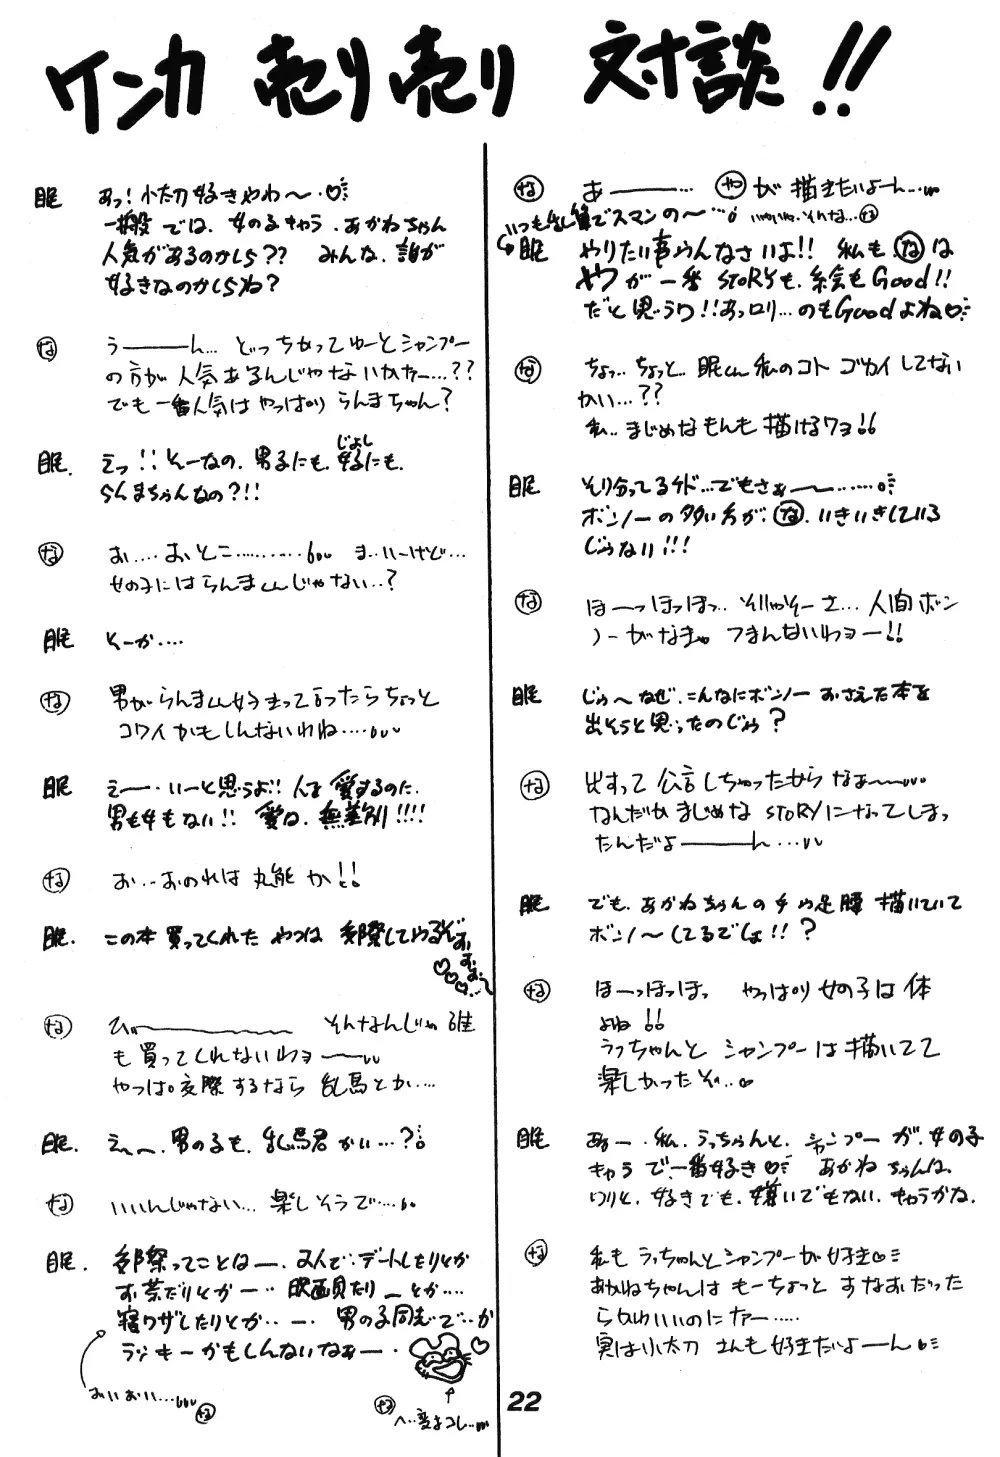 ケンカ 売り売り 対談!!
眠 あっ!小太刀好きやわ〜・♡
一般では、女の子キャラ、あかねちゃん
人気があるのかしら?? みんな、誰が
好きなのかしらね?
な うーーん… どっちかってゆーとシャンプー
の方が人気あるんじゃないかなー…??
でも一番人気はやっぱりらんまちゃん?
眠. えっ!!そーなの、男子にも、女子にも、
じょし
らんまちゃんなの?!!
な お‥‥おとこ‥‥‥‥‥ ま‥いーけど…
女の子にはらんまくんじゃない‥?
眠 そーか‥‥
な 男がらんまくん好きって言ったらちょっと
コワイかもしんないわね‥‥
眠 えー・いーと思うよ!!人を愛するのに、
男も女もない!! 愛は、無差別!!!!
な お‥おのれは 丸能 か!!
眠. この本買ってくれた やつは 交際してやるぞ
な ひーーーー そんなんじゃ誰
も買ってくれないわヨーー
やっぱ。交際するなら 乱馬とか‥‥
眠. え〜、男の子も、乱馬君 かい…?
な いいんじゃない… 楽しそうで…
眠. 交際ってことはー、2人で・デートしたりとか
お茶だりとかー‥ 映画見たり_とか‥‥
寝ワザしたりとか‥ー・ 男の子同志で‥か
ラッキーかもしんないなぁー・・
おいおい… な
な へ‥変なコレ‥
な あーー… やが描きたいよーん…
いつも乱筆でスマンの〜… いやいや、そんな… な
眠 やりたい事やんなさいよ!! 私もなは
やが一番 STORYも、絵もGood!!
だと思うワ!!あっロリ…のもGoodよね♡
な ちょっ‥ちょっと‥眠くん私のコト ゴカイしてない
かい…??
私‥まじめなもんも描けるワヨ!!
眠 そり分ってるケド…でもさぁー〜……
ボンノーの多い方が、な、いきいきしている
じゃない!!!
な ほーっほっほっ‥ そりゃそーさ… 人間ボン
ノーがなきゃ つまんないわヨー!!
眠 じゃ〜なぜ、こんなにボンノー おさえた本を
出そうと思ったのじゃ?
な 出すって 公言しちゃったから なぁ〜〜
なんだか まじめな STORYになってしまっ
たんだよーーん・・・
眠 でも、あかねちゃんの 手や足腰 描いていて
ボンノ〜してるでしょ!!?
な ほーっほっほっ やっぱり女の子は体
よね!!
うっちゃんと シャンプーは描いてて
楽しかったぞ‥
眠 あぁー・私、うっちゃんと、シャンプーが、女の子
キャラで一番好き♡ あかねちゃんは、
わりと、好きでも、嫌いでもない、キャラかな、
な 私も うっちゃんとシャンプーが好き♡
あかねちゃんは もーちょっと すなおだった
らかわいいのにナァー‥‥‥
実は小太刀さんも好きだよーん♡
22